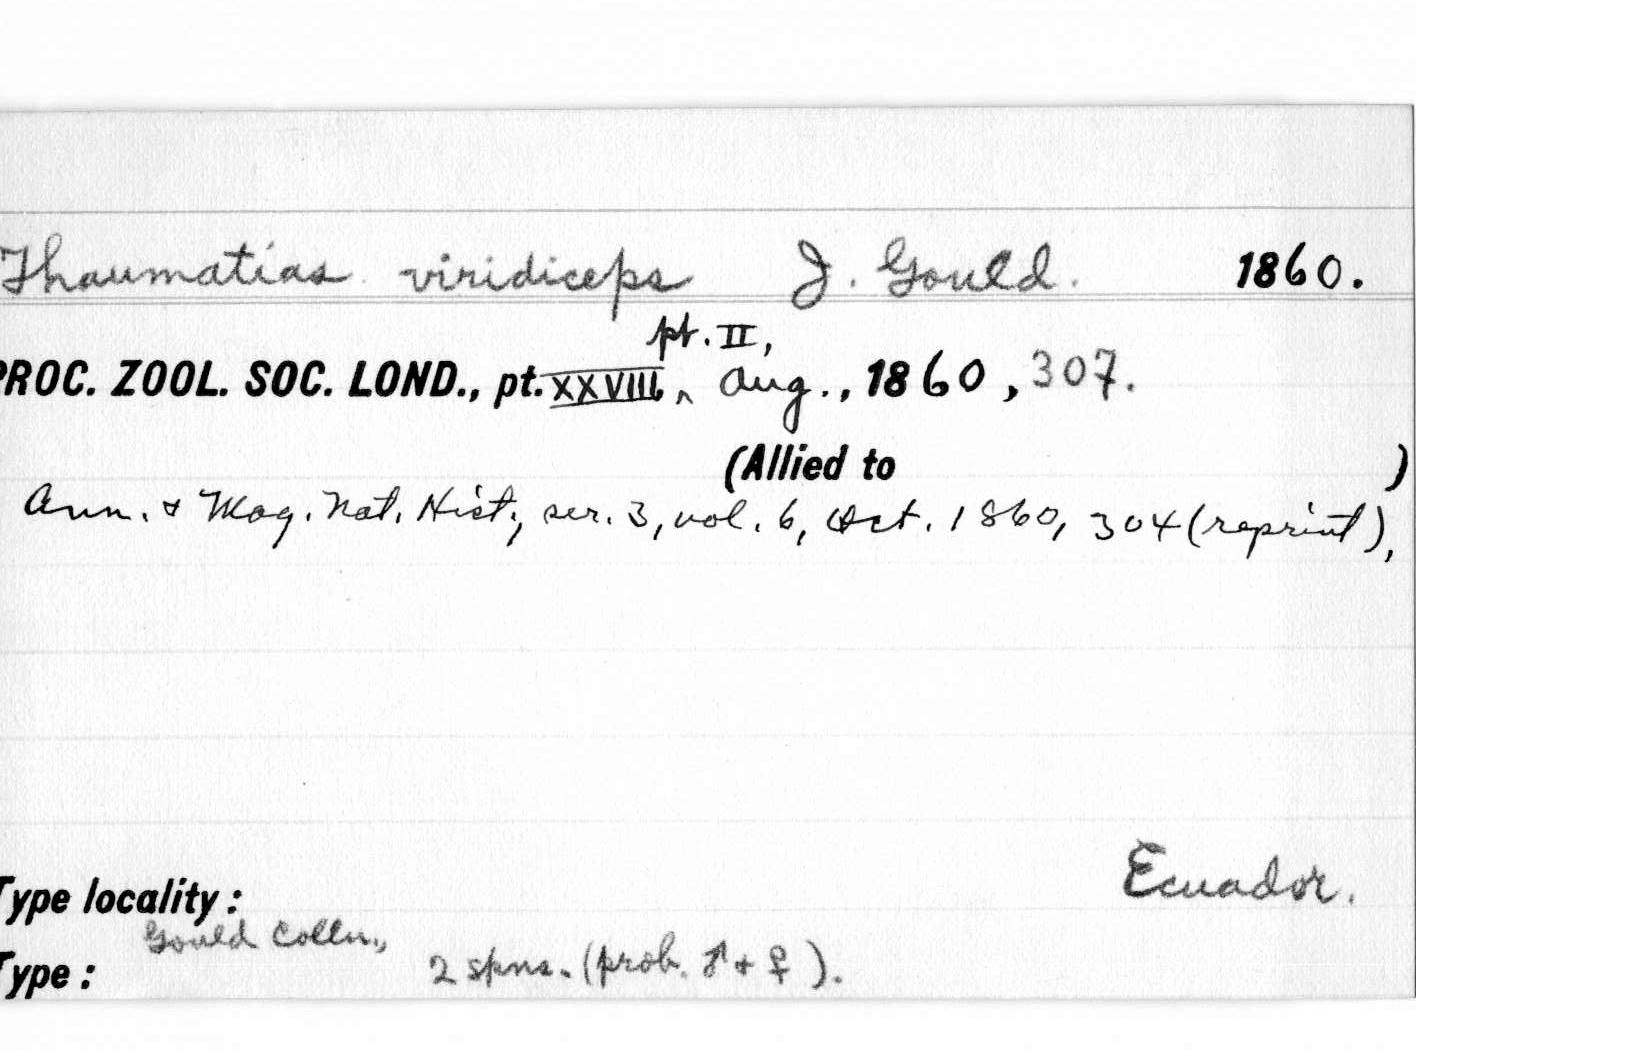 Thaumatias viridiceps J. Gould. 1860.
pt. II,
PROC. ZOOL. SOC. LOND., pt. XXVIII, ^ Aug., 1860, 307.
(Allied to )
Ann. & Mag. Nat. Hist., ser. 3, vol. 6, Oct. 1860, 304 (reprint),
Ecuador.
Type locality:
Gould Colln.,
Type: 2 spns. (prob. ♂ + ♀).